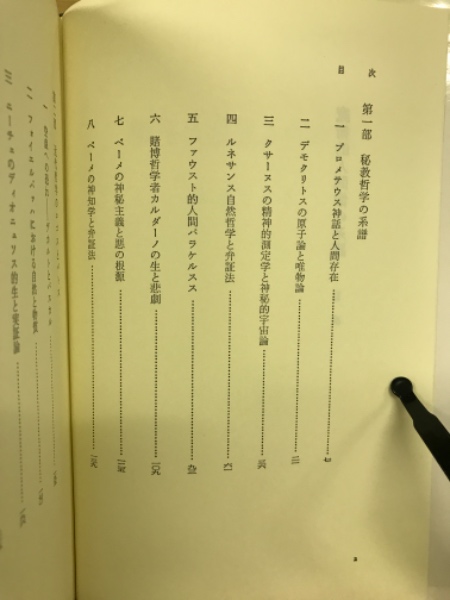 目次
第一部 秘教哲学の系譜
一 プロメテウス神話と人間存在 七
二 デモクリトスの原子論と唯物論
三 クサーヌスの精神的測定学と神秘的宇宙論
四 ルネサンス自然哲学と弁証法 六一
五 ファウスト的人間パラケルスス
六 賭博哲学者カルダーノの生と悲劇 一〇九
七 ベーメの神秘主義と悪の根源
八 ベーメの神知学と弁証法
3
二 フォイエルバッハにおける自然と物質
三 ニーチェのディオニュソス的生と実証論